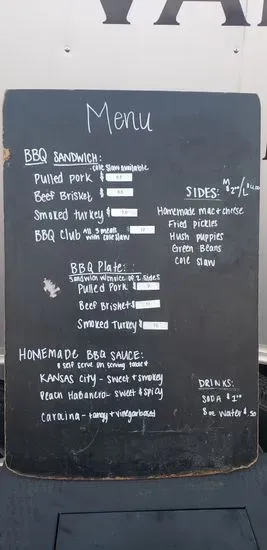 Menu
BBQ SANDWICH:
cole slaw available
Pulled pork $
Beef Brisket $
Smoked turkey $
BBQ Club All 3 meats $
with cole slaw
SIDES: M $2.00/L
Homemade mac + cheese
Fried pickles
Hush puppies
Green Beans
Cole slaw
BBQ Plate:
Sandwich w/choice of 2 sides
Pulled Pork $
Beef Brisket $
Smoked Turkey $
HOMEMADE BBQ SAUCE:
* self serve on serving table *
KANSAS City - sweet + smokey
Peach Habanero - sweet & spicy
Carolina - tangy + vinegar based
DRINKS:
SODA $1.00
8 oz Water $.50